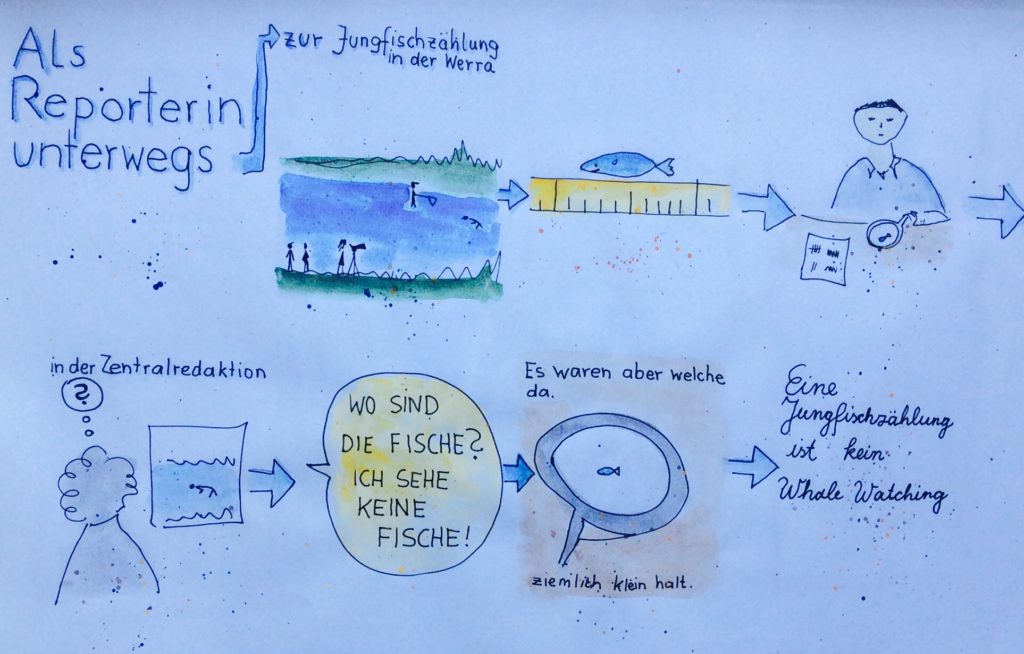 Als
Reporterin
unterwegs
zur Jungfischzählung
in der Werra
in der Zentralredaktion
?
WO SIND
DIE FISCHE?
ICH SEHE
KEINE
FISCHE!
Es waren aber welche
da.
ziemlich klein halt.
Eine
Jungfischzählung
ist kein
Whale Watching